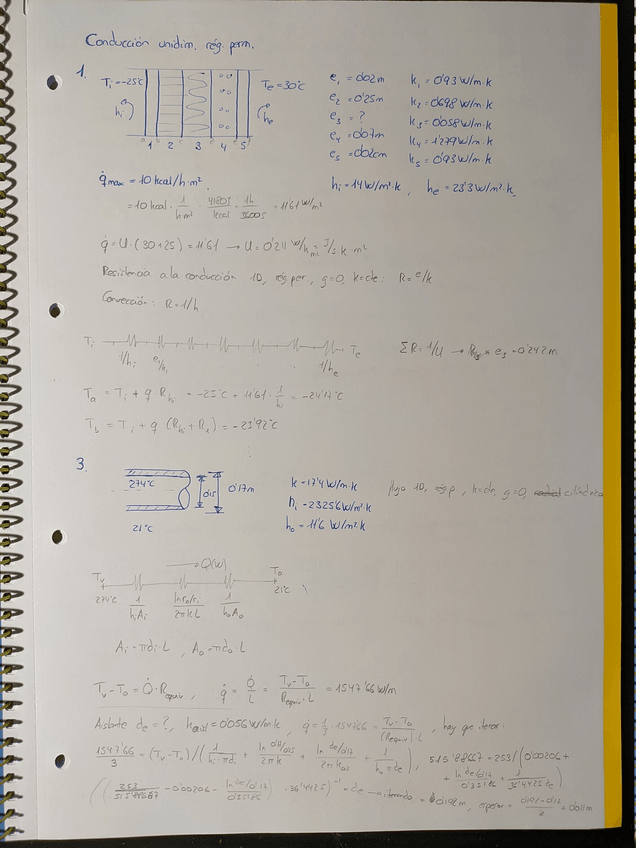 Conducción unidim. rég. perm.
1.
Ti = -25°C
Te = 30°C
hi
he
1 2 3 4 5
e1 = 0'02m k1 = 0'93 W/m·K
e2 = 0'25m k2 = 0'698 W/m·K
e3 = ? k3 = 0'058 W/m·K
e4 = 0'07m k4 = 1'279 W/m·K
e5 = 0'02cm k5 = 0'93 W/m·K
q̇max = 10 kcal/h·m² hi = 14 W/m²·K, he = 23'3 W/m²·K
= 10 kcal · 1/h·m² · 4180J/kcal · 1h/3600s = 11'61 W/m²
q̇ = U·(30+25) = 11'61 → U = 0'211 W/K m² = J/s·K m²
Resistencia a la conducción 1D, rég. per, g=0, k=cte: R = e/k
Convección: R = 1/h
Ti 1/hi e1/k1 1/he Te
ΣR = 1/U → e3 = 0'242m
Ta = Ti + q·Rhi = -25°C + 11'61·1/hi = -24'17°C
Tb = Ti + q (Rhi + R1) = -23'92°C
3.
274°C
21°C
0'15 0'17m
k = 17'4 W/m·K
hi = 2325'6 W/m²·K
ho = 11'6 W/m²·K
flujo 1D, rég p, k=cte, g=0, cilíndrica
→ Q̇(W)
Tv To
274°C 21°C
1/hiAi ln ro/ri/2πkL 1/hoAo
Ai = πdi·L, Ao = πdo·L
Tv - To = Q̇·Requiv, q̇ = Q̇/L = Tv-To/Requiv·L = 1547'66 W/m
Aislante de = ?, kaisl = 0'056 W/m·K, q̇ = 1/3·1547'66 = Tv-To/(Requiv)·L, hay que iterar:
1547'66/3 = (Tv-To)/(1/hi·πdi + ln 0'17/0'15/2πk + ln de/0'17/2πkais + 1/ho πde), 515'88667 = 253/(0'00206 +
+ ln de/0'17/0'35186 + 1/36'4425 de)
((253/515'88667 - 0'00206 - ln de/0'17/0'35186)·36'4425)⁻¹ = de → iterando = 0'192m, espesor = 0'192-0'17/2 = 0'011m